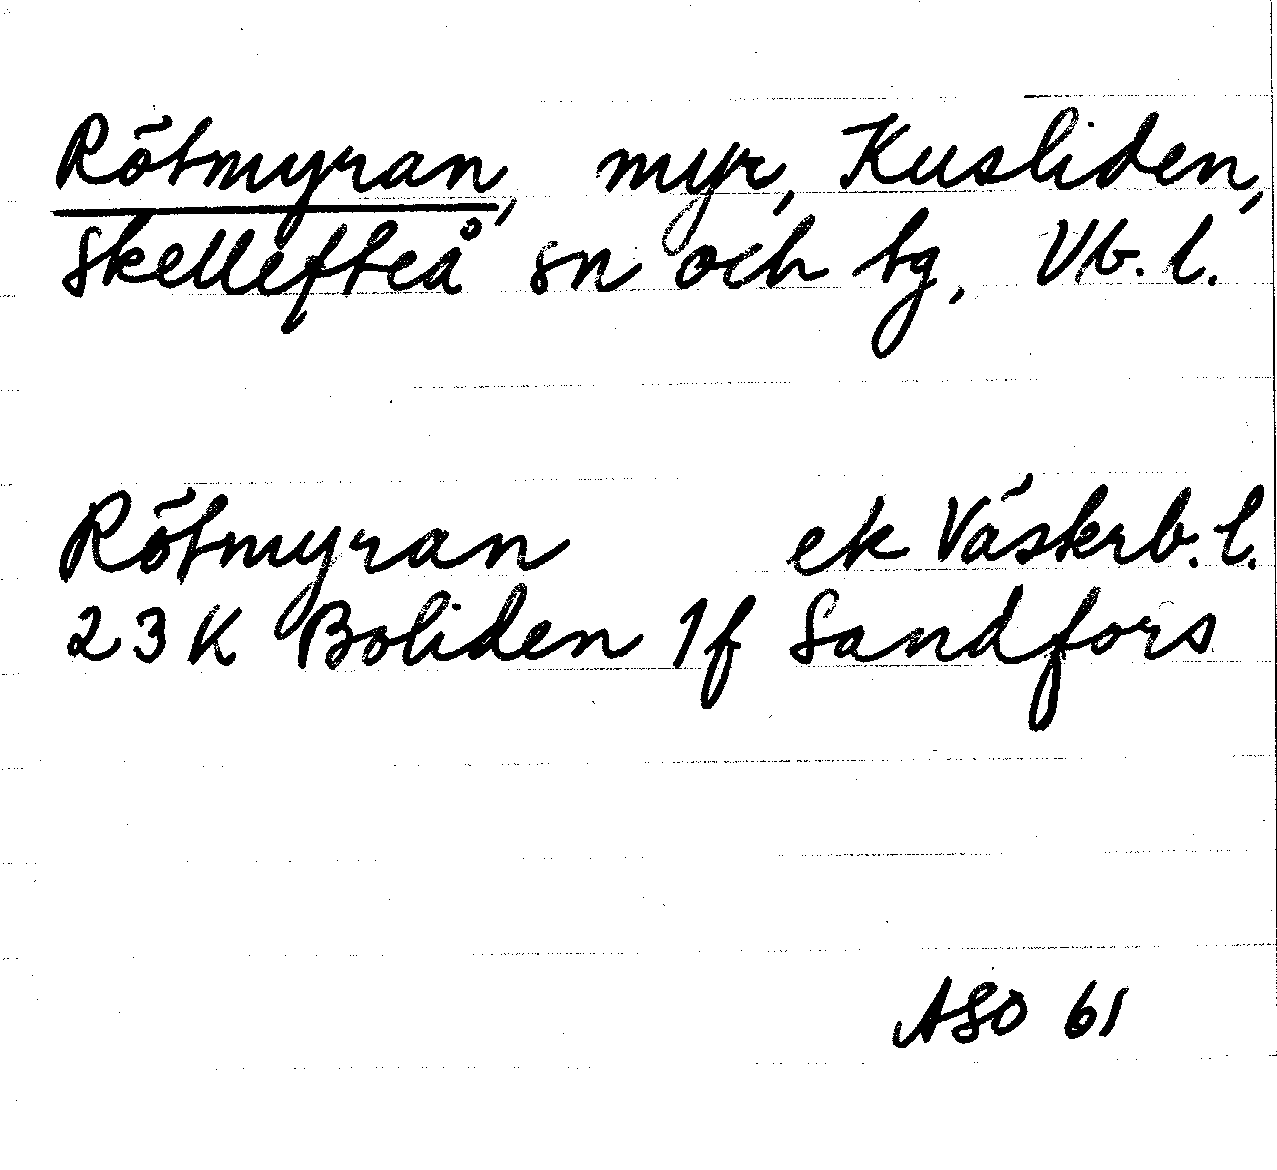 Rötmyran, myr, Kusliden,
Skellefteå sn och tg, Vb. l.
Rötmyran ek Västerb. l.
23 K Boliden 1f Sandfors
ASO 61